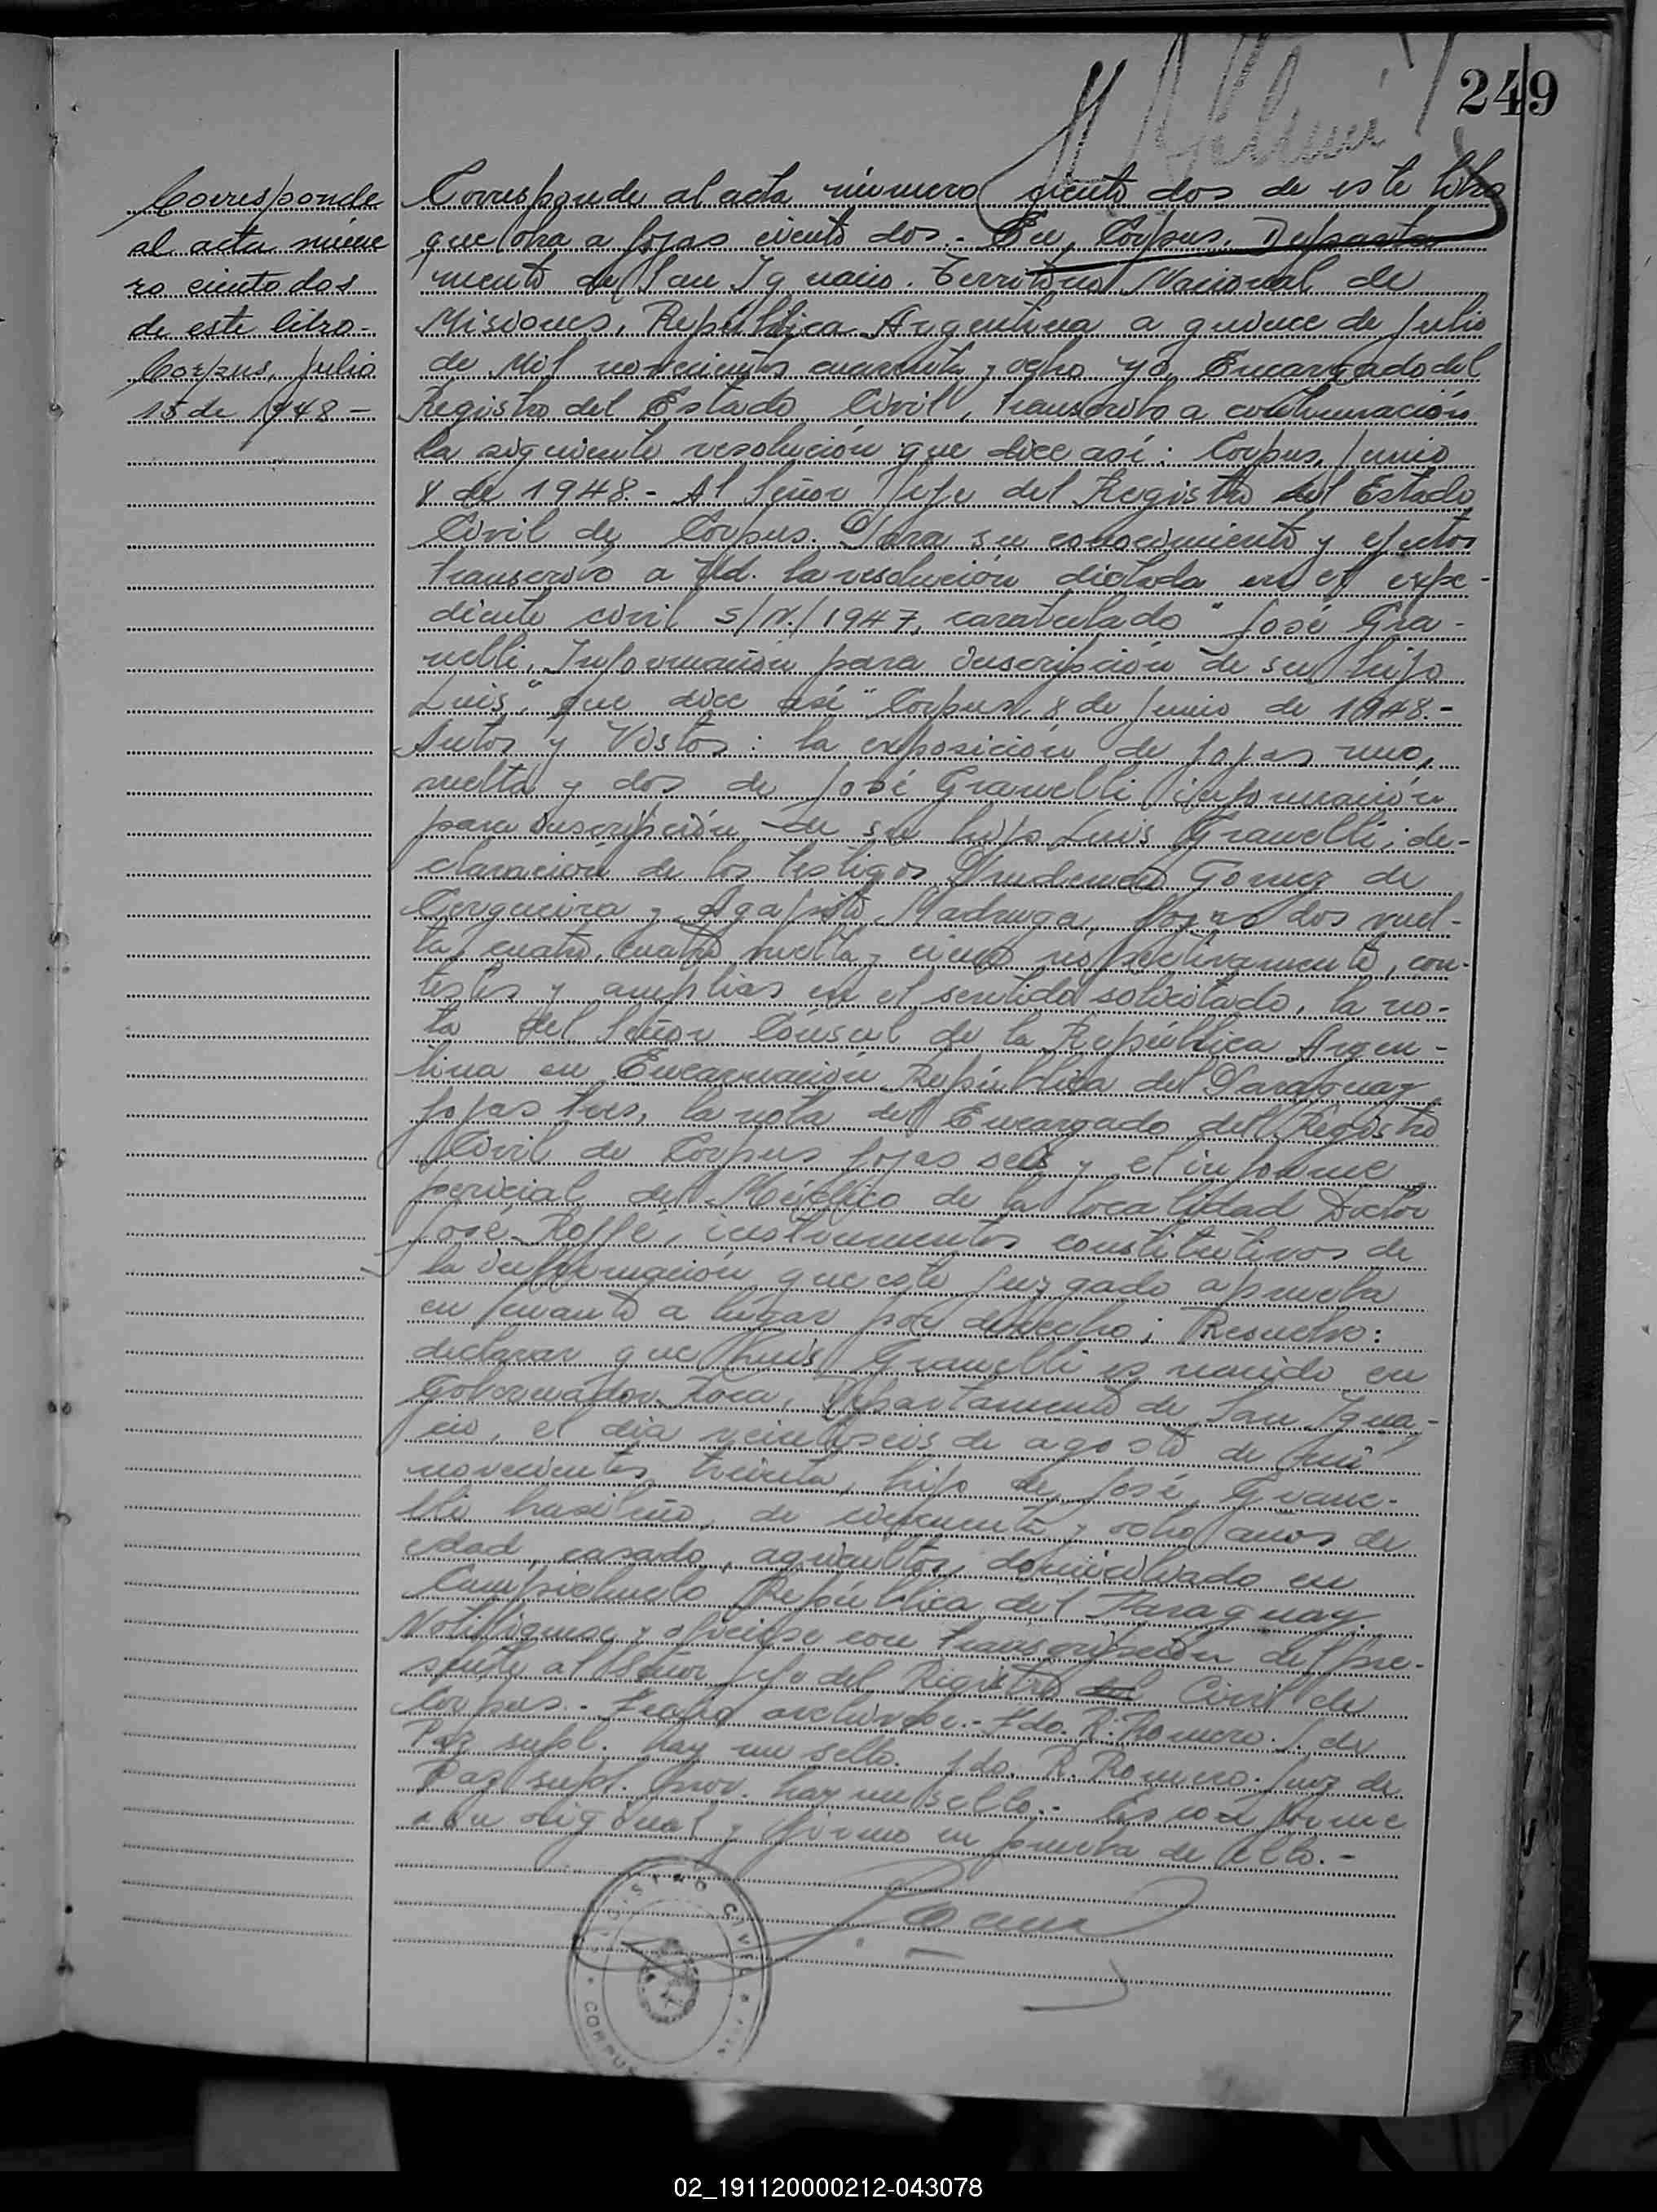 249
Corresponde
al acta núme
ro ciento dos
de este libro-
Corpus, julio
15 de 1948-
Corresponde al acta número ciento dos de este libro
que obra a fojas ciento dos.- En, Corpus, Departa
mento de San Ignacio. Territorio Nacional de
Misiones, República Argentina a quince de julio
de Mil novecientos cuarenta y ocho yo, Encargado del
Registro del Estado Civil, transcribo a continuación
la siguiente resolución que dice así: Corpus, Junio
8 de 1948.- Al Señor Jefe del Registro del Estado
Civil de Corpus. Para su conocimiento y efectos
transcribo a Ud. la resolución dictada en el expe-
diente civil S/N./1947, caratulado "José Gra-
nelli, Información para inscripción de su hijo
Luis", que dice así "Corpus, 8 de junio de 1948.-
Autos y Vistos: la exposición de fojas uno,
vuelta y dos de José Granelli información
para inscripción de su hijo Luis Granelli; de-
claración de los testigos Gomez de
Cerqueira y Agapito Madruga, fojas dos vuel-
ta, cuatro, cuatro vuelta y cinco respectivamente, con-
testes y amplias en el sentido solicitado, la no-
ta del Señor Cónsul de la República Argen-
tina en Encarnación República del Paraguay
fojas tres, la nota del Encargado del Registro
Civil de Corpus fojas seis y el informe
pericial del Médico de la localidad Doctor
José Roffé, instrumentos constitutivos de
la información que este juzgado aprueba
en cuanto a lugar por derecho; Resuelvo:
declarar que Luis Granelli es nacido en
Gobernador Roca, Departamento de San Igna-
cio, el dia veintiseis de agosto de mil
novecientos treinta, hijo de José Grane-
lli brasileño, de cincuenta y ocho años de
edad, casado, agricultor, domiciliado en
Campichuelo República del Paraguay.
Notifíquese y ofíciese con transcripción del pre-
sente al Señor Jefe del Registro del Civil de
Corpus.- Fecho archívese.- Fdo. R. Romero. J. de
Paz supl. hay un sello. fdo. R. Romero. Juez de
Paz supl. hay un sello.- Es conforme
a su original y firmo en prueba de ello.-
CIVIL
CORPUS
02_191120000212-043078